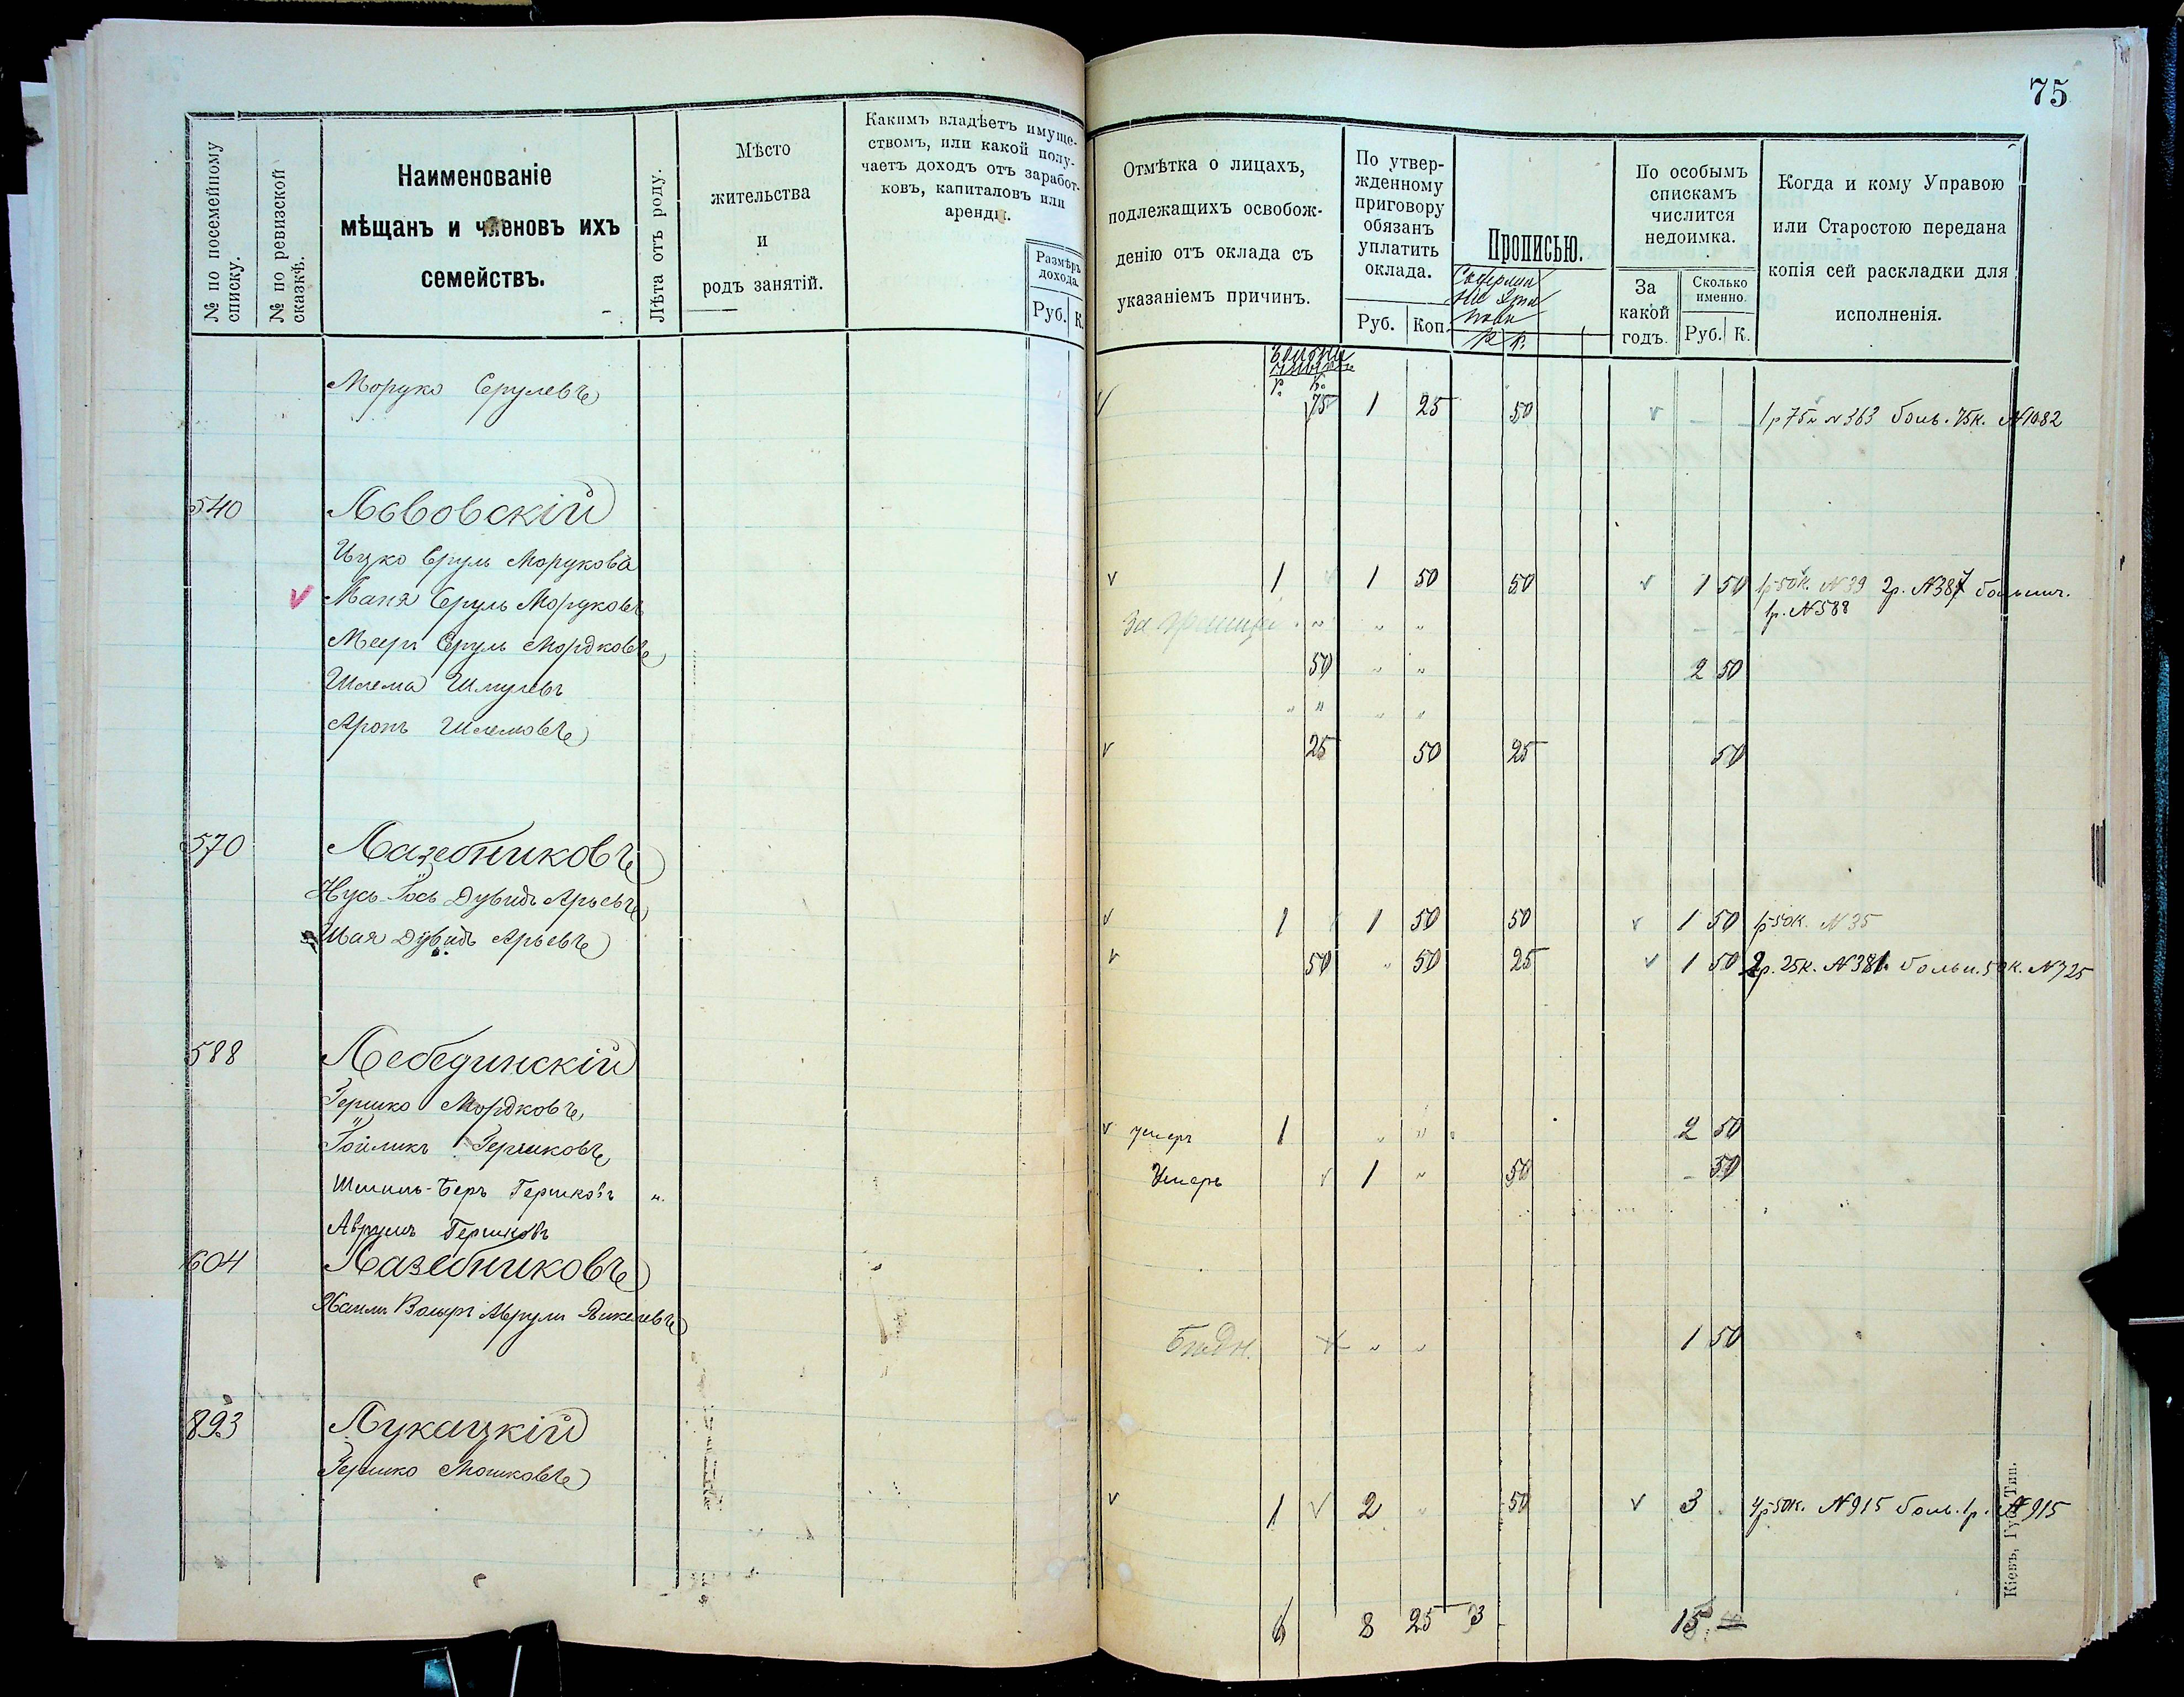 75
№ по посемейному списку.
№ по ревизской сказкѣ.
Наименованіе
мѣщанъ и членовъ ихъ
семействъ.
Лѣта отъ роду.
Мѣсто
жительства
и
родъ занятій.
Какимъ владѣетъ имуще-
ствомъ, или какой полу-
чаетъ доходъ отъ заработ-
ковъ, капиталовъ или
аренды.
Размѣръ
дохода.
Руб. К.
Отмѣтка о лицахъ,
подлежащихъ освобож-
денію отъ оклада съ
указаніемъ причинъ.
По утвер-
жденному
приговору
обязанъ
уплатить
оклада.
Руб. Коп.
Прописью.
Р. К.
По особымъ
спискамъ
числится
недоимка.
За
какой
годъ.
Сколько
именно.
Руб. К.
Когда и кому Управою
или Старостою передана
копія сей раскладки для
исполненія.
Р. К.
Моруко Срулевъ
75 1 25 50 1р 75к №363 боль. 75к. №1082
540 Львовскій
Ицко Сруль Морукова
1 1 50 50 1 50 1р 50к. №39 2р. №387 больнич.
1р. №588
Маня Сруль Моруковъ
За границ.
Меер Сруль Мордковъ
50 2 50
Шлема Шмулевъ
Аронъ Шлемовъ
25 50 25 50
570 Лазебниковъ
Нусь Іось Дувидъ Арьевъ
1 1 50 50 1 50 1р 50к. №35
Шая Дувидъ Арьевъ
50 50 25 1 50 2р. 25к. №381 больн. 50к. №725
588 Лебединскій
Гершко Мордковъ
умеръ 1 2 50
Іойликъ Гершковъ
Умеръ 1 50 50
Шмиль-Беръ Гершковъ
Аврумъ Гершковъ
604 Лазебниковъ
Вольфъ Аврумъ Янкелевъ
Бѣдн. 1 50
893 Лукацкій
Гершко Мошковъ
1 2 50 3 4р 50к. №915 боль. 1р. №915
6 8 25 3 15
Кіевъ, Губ. Тип.